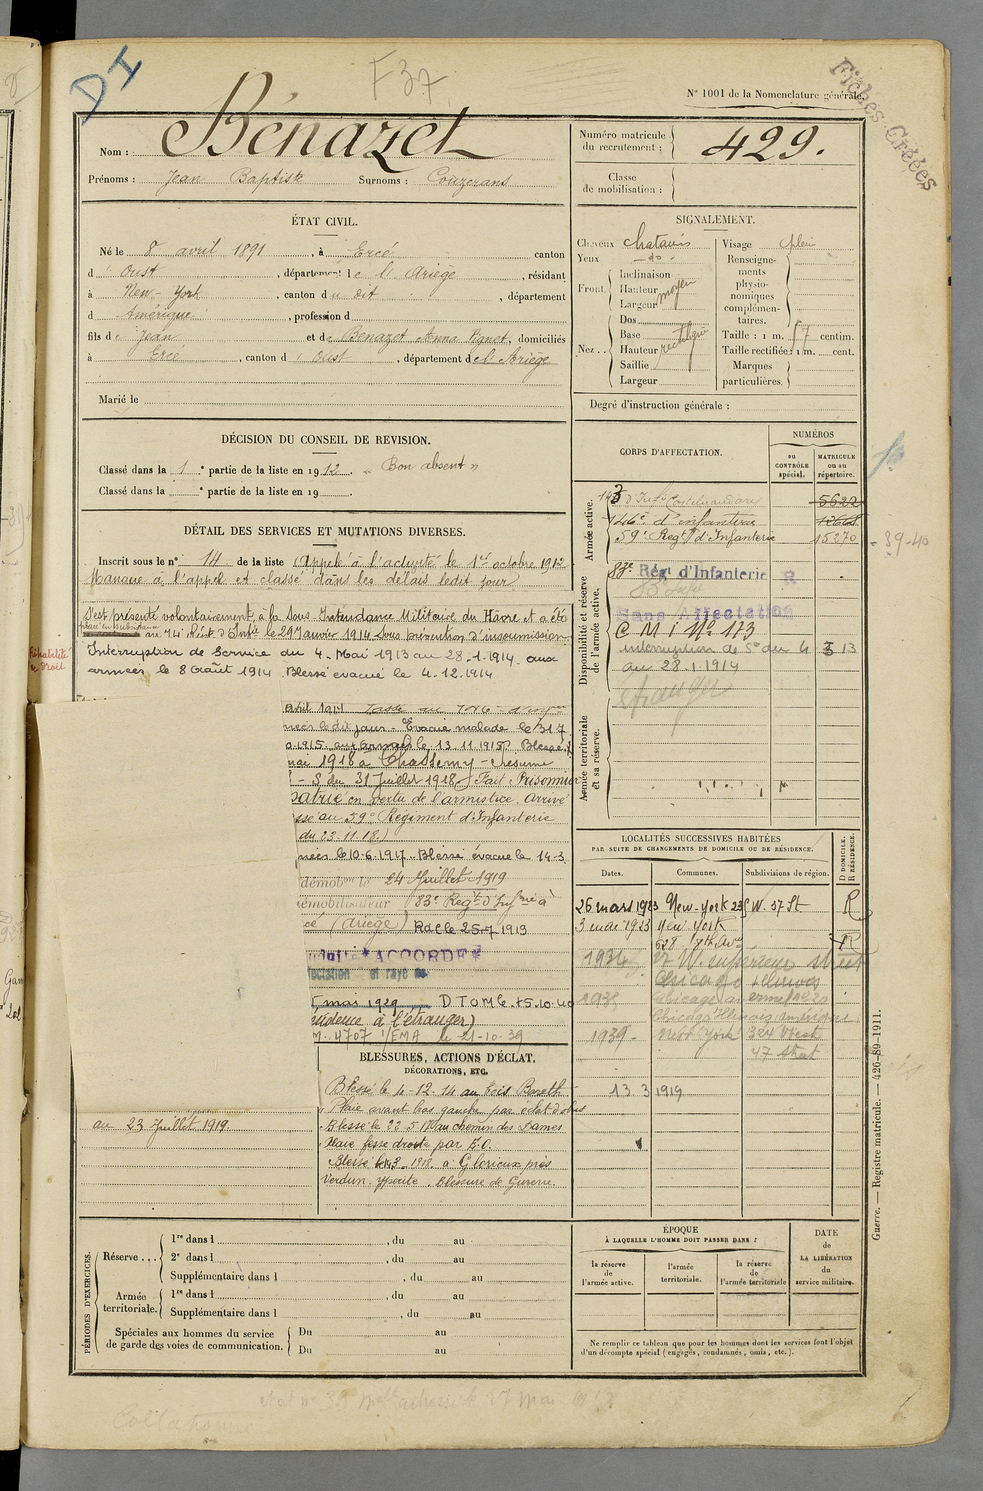 DI
F37
Fiches Créées
N° 1001 de la Nomenclature générale.
Nom : Bénazet
Prénoms : Jean Baptiste Surnoms : Couzerans
Numéro matricule du recrutement : 429.
Classe de mobilisation :
ÉTAT CIVIL.
Né le 8 avril 1891, à Ercé canton
d' Oust, département de l'Ariège, résidant
à New-York, canton du dit, département
d' Amérique, profession d
fils de Jean et de Benazet Anna Pignet, domiciliés
à Ercé, canton d' Oust, département de l'Ariège
Marié le
SIGNALEMENT.
Cheveux chatains
Yeux - do -
Front
Inclinaison
Hauteur moyen
Largeur
Nez
Dos
Base
Hauteur rectiligne
Saillie
Largeur
Visage plein
Renseignements physionomiques complémentaires.
Taille : 1 m. 57 centim.
Taille rectifiée : 1 m. cent.
Marques particulières.
Degré d'instruction générale :
DÉCISION DU CONSEIL DE REVISION.
Classé dans la 1e partie de la liste en 1912. « Bon absent »
Classé dans la e partie de la liste en 19
DÉTAIL DES SERVICES ET MUTATIONS DIVERSES.
Inscrit sous le n° 14 de la liste (Appelé à l'activité le 1er octobre 1912
Manque à l'appel et classé dans les délais ledit jour
S'est présenté volontairement, à la Sous-Intendance Militaire du Havre et a été
au 74e Régt d'Infie le 29 Janvier 1914 sous prévention d'insoumission
Interruption de Service du 4 Mai 1913 au 28.1.1914 aux
armées le 8 août 1914 Blessé évacué le 4.12.1914
Réhabilité de Droit
août 1914 Passé au 146e
mées le dit jour. Evacué malade le 31 7
1915 aux armées le 13 11 1915 Blessé
mai 1918 à Chassemy - présumé
- S du 31 Juillet 1918 Fait Prisonnier
patrié en vertu de l'armistice. Arrivé
ssé au 59e Régiment d'Infanterie
du 23.11.18.)
mées le 10-6-1917. Blessé évacué le 14-3
démobon le 24 Juillet 1919
émobilisateur 83e Régt d'Infrie à
cé (Ariège) R.d.C le 25.7.1919
*ACCORDÉ*
fectation et rayé de
5 mai 1929 DTOMC. 15.10.40
(résidence à l'étranger)
M. 4707 1/EMA le 21-10-39
au 23 Juillet 1919.
BLESSURES, ACTIONS D'ÉCLAT, DÉCORATIONS, ETC.
Blessé le 4-12-14 au bois
Plaie avant bras gauche par éclat d'obus
Blessé le 22-5-17 au chemin des Dames
Plaie fesse droite par E.O.
Blessé le 14.3.1918. à Glorieux près
Verdun. Ypérite. Blessure de Guerre.
CORPS D'AFFECTATION.
NUMÉROS
au CONTRÔLE spécial.
MATRICULE ou au répertoire.
Armée active.
143 d'Infie Castelnaudary 5622
146e d'infanterie
59e Régt d'Infanterie 15270
39-40
Disponibilité et réserve de l'armée active.
83e Rég. d'Infanterie R
Sans Affectation
C M i No 113
interruption de Sce du 4 5 13
au 28.1.1914
étranger
Armée territoriale et sa réserve.
LOCALITÉS SUCCESSIVES HABITÉES
PAR SUITE DE CHANGEMENTS DE DOMICILE OU DE RÉSIDENCE.
Dates. Communes. Subdivisions de région. D DOMICILE. R RÉSIDENCE.
26 mars 1923 New-York 235 W. 37 St R
3 mai 1923 New York
628 7th Ave R
1934 27 W. superieur street
Chicago Illinois
1938
Chicago Illinois
1939 - New York 324 West
47 Street
13 3 1919
PÉRIODES D'EXERCICES.
Réserve ...
1re dans l , du au
2e dans l , du au
Supplémentaire dans l , du au
Armée territoriale.
1re dans l , du au
Supplémentaire dans l , du au
Spéciales aux hommes du service de garde des voies de communication.
Du au
Du au
ÉPOQUE
À LAQUELLE L'HOMME DOIT PASSER DANS :
la réserve de l'armée active.
l'armée territoriale.
la réserve de l'armée territoriale
DATE de LA LIBÉRATION du service militaire.
Ne remplir ce tableau que pour les hommes dont les services font l'objet
d'un décompte spécial (engagés, condamnés, omis, etc.).
Guerre. — Registre matricule. — 426-89-1911.